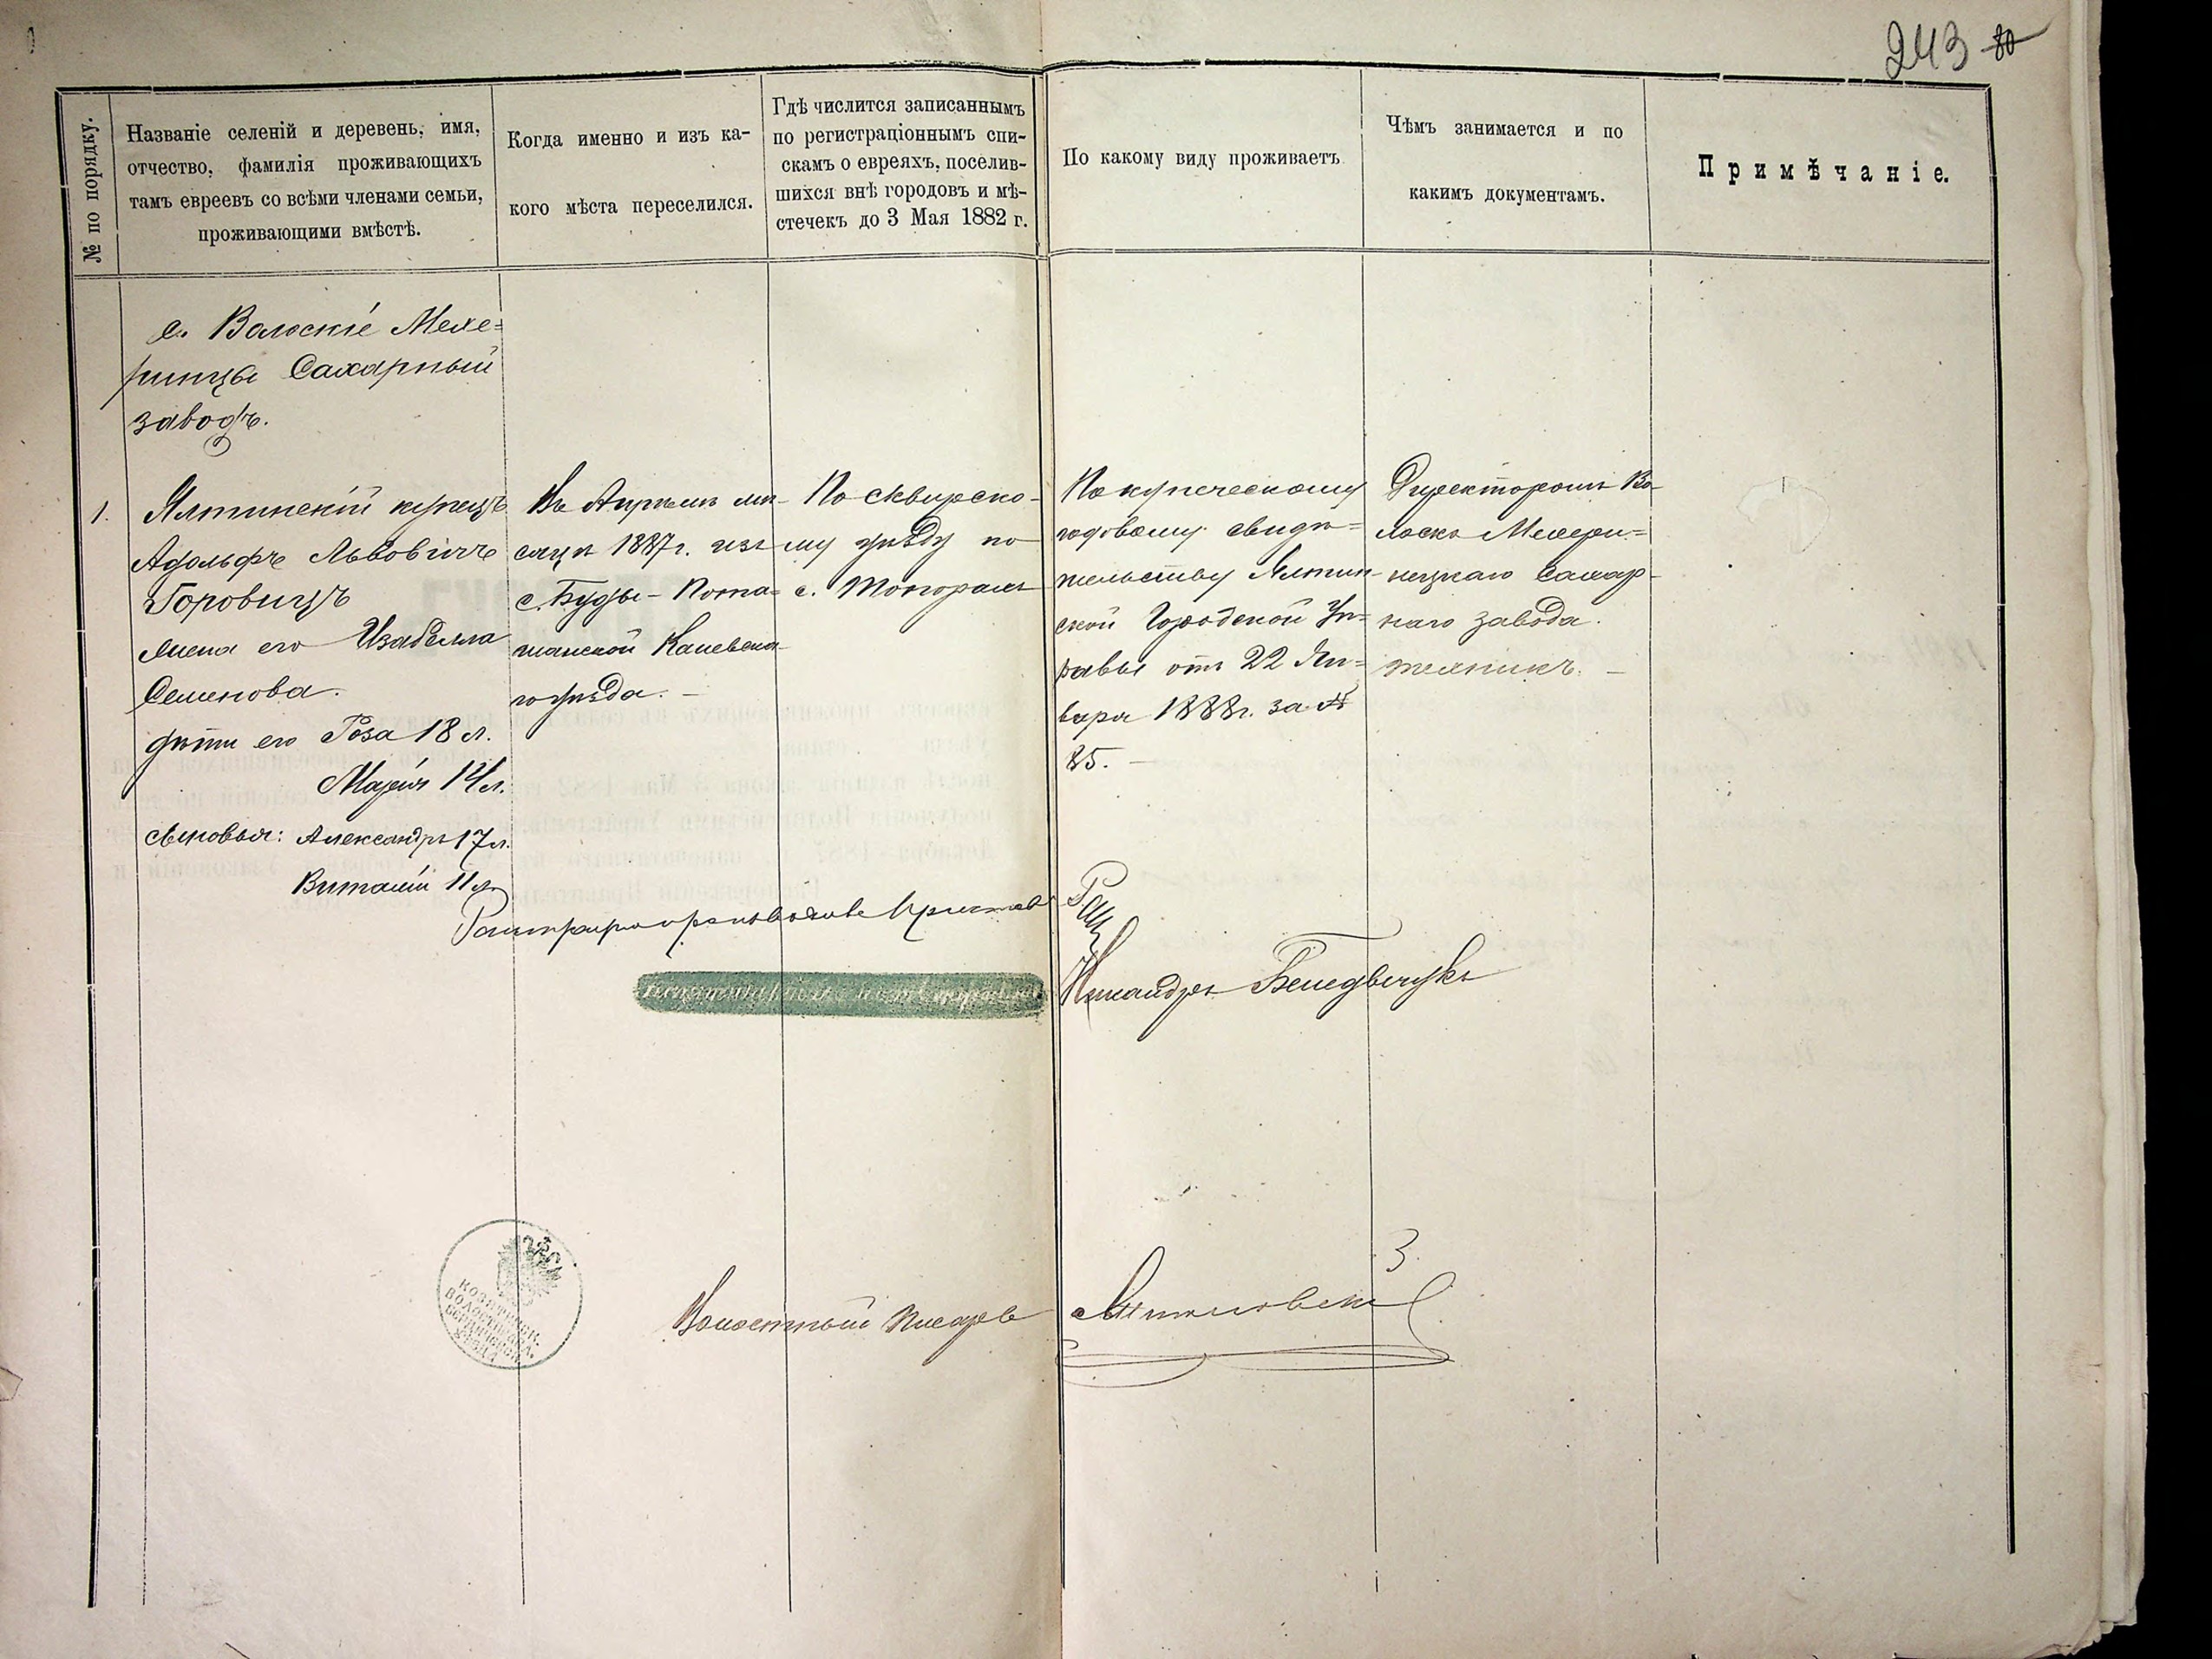 243 80
№ по порядку.
Названіе селеній и деревень, имя,
отчество, фамилія проживающихъ
тамъ евреевъ со всѣми членами семьи,
проживающими вмѣстѣ.
Когда именно и изъ ка-
кого мѣста переселился.
Гдѣ числится записаннымъ
по регистраціоннымъ спи-
скамъ о евреяхъ, поселив-
шихся внѣ городовъ и мѣ-
стечекъ до 3 Мая 1882 г.
По какому виду проживаетъ
Чѣмъ занимается и по
какимъ документамъ.
Примѣчаніе.
с. Волоскіе Мехе=
ринцы Сахарный
заводъ.
1.
Ялтинскій купецъ
Адольфъ Львовичъ
Горовицъ
жена его Изабелла
Семенова.
дѣти его Роза 18 л.
Марія 14 л.
сыновья: Александръ 17 л.
Виталій 11 л.
Въ Апрѣлѣ мѣ-
сяцѣ 1887 г. изъ
с. Буды-Пота=
Каневска-
го уѣзда. –
По Сквирско-
му уѣзду по
с. Топорамъ
По купеческому
годовому свидѣ=
тельству Ялтин-
ской Городской Уп=
равы отъ 22 Ян=
варя 1888 г. за №
85. –
Директоромъ Во-
лоско Мехери=
нецкаго Сахар-
наго завода.
–
Никандръ
Волостный Писарь
3
КОЗЯТИНСК.
ВОЛОСТН. ПРАВЛ.
БЕРДИЧЕВСК.
УѢЗДА